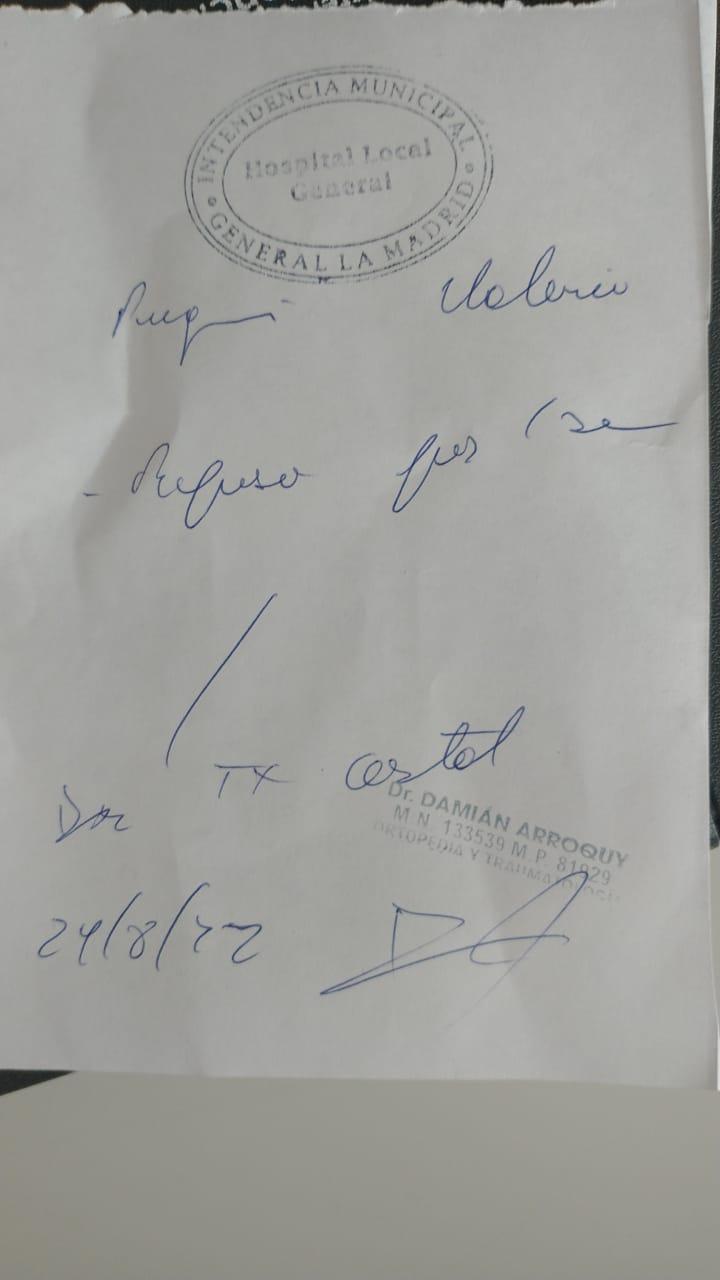 INTENDENCIA MUNICIPAL
Hospital Local
General
GENERAL LA MADRID
Valeria
- Reposo por
Dx TX costal
Dr. DAMIÁN ARROQUY
M.N. 133539 M.P. 81929
ORTOPEDIA Y TRAUMATOLOGÍA
24/8/22